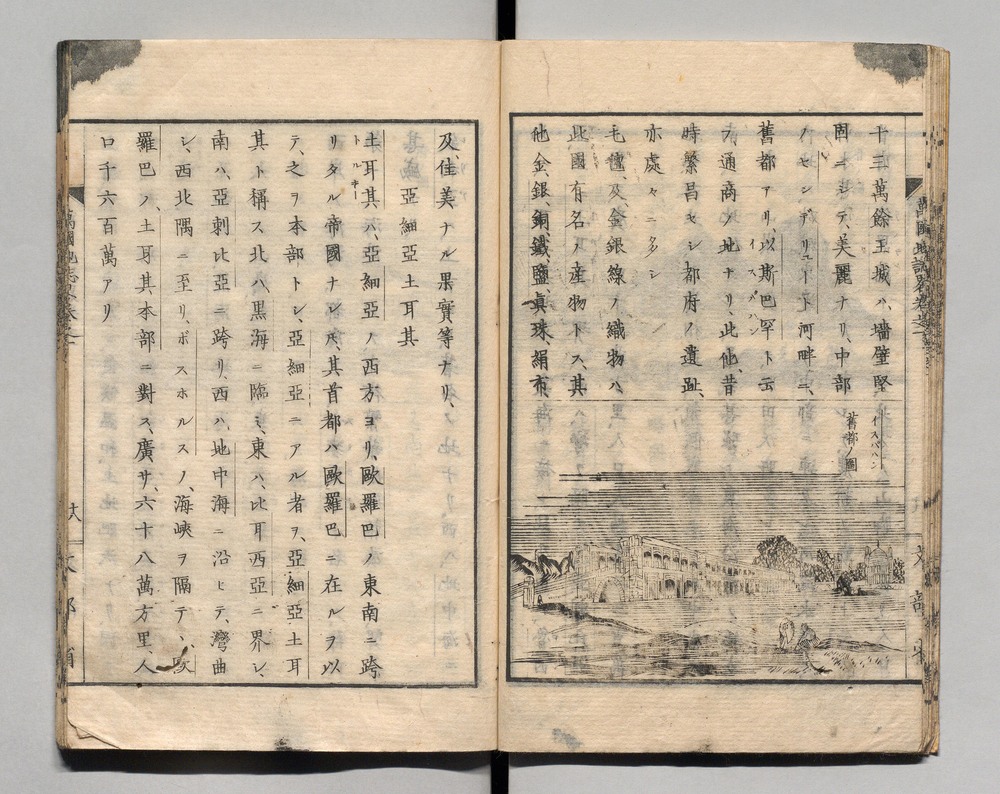 十三萬餘、王城ハ、墻壁堅
固ニシテ、美麗ナリ、中部
河畔ニ、
舊都アリ、以斯巴罕ト云
イスパハン
通商ノ地ナリ、此他、昔
時繁昌セシ都府ノ遺趾、
亦處々ニ多シ
毛氊及金銀線ノ織物ハ、
此國有名ノ産物トス、其
他、金、銀、銅、鐵、鹽、眞珠、絹布、
イスパハン
舊都ノ圖
及、佳美ナル果實等ナリ、
亞細亞土耳其
土耳其ハ、亞細亞ノ西方ヨリ、歐羅巴ノ東南ニ跨
トルキー
リタル帝國ナレ𪜈、其首都ハ歐羅巴ニ在ルヲ以
テ、之ヲ本部トシ、亞細亞ニアル者ヲ、亞細亞土耳
其ト稱ス、北ハ、黒海ニ臨ミ、東ハ、比耳西亞ニ界シ、
南ハ、亞剌比亞ニ跨リ、西ハ、地中海ニ沿ヒテ、灣曲
シ、西北隅ニ至リ、ボスホルスノ、海峡ヲ隔テ、歐
羅巴ノ、土耳其本部ニ對ス、廣サ、六十八萬方里、人
口千六百萬アリ
萬國地誌略卷之一
文部省